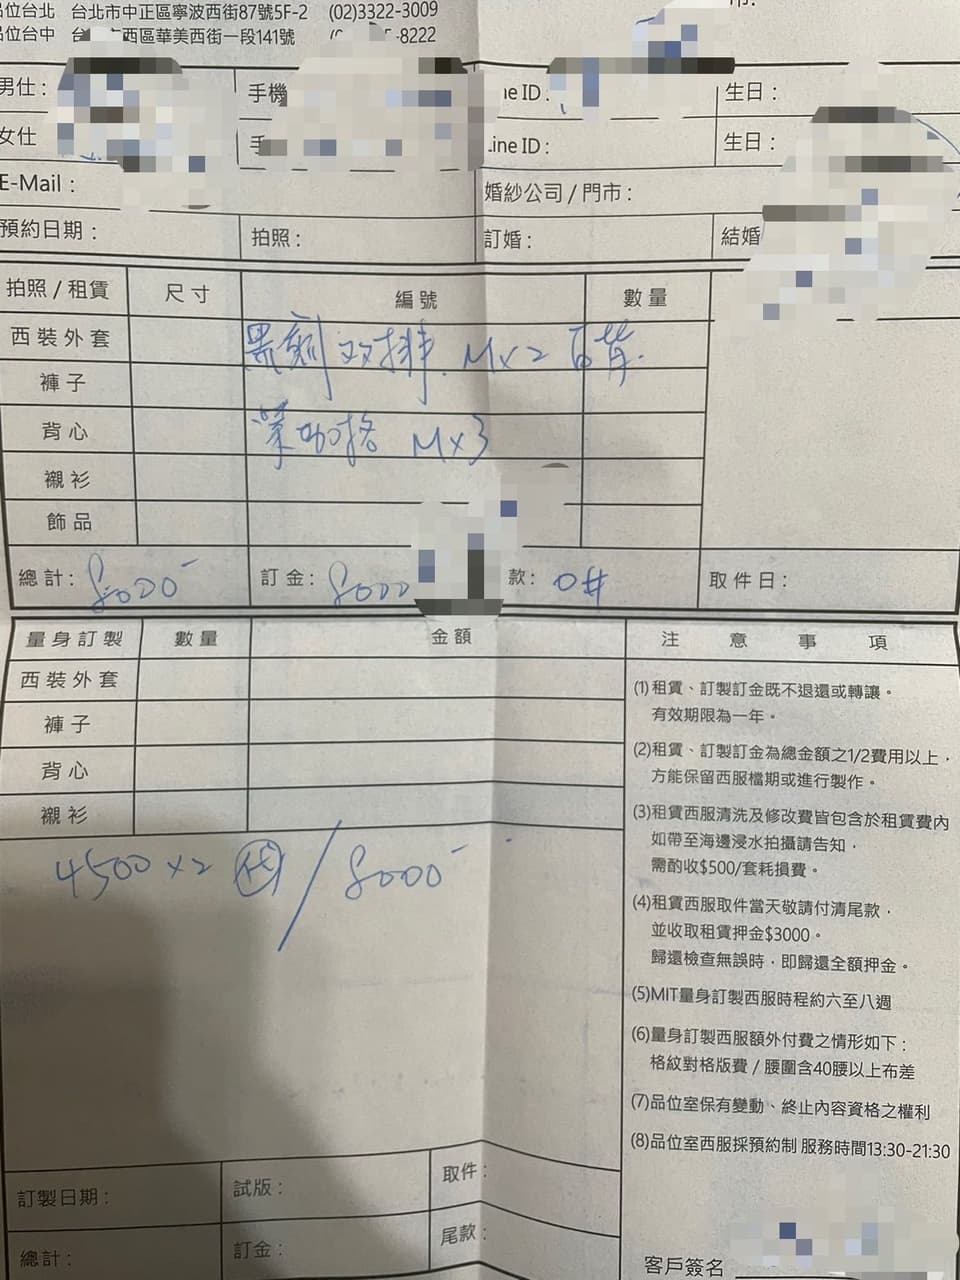 品位台北 台北市中正區寧波西街87號5F-2 (02)3322-3009
品位台中 台 市西區華美西街一段141號 -8222
男仕：
手機
ine ID：
生日：
女仕
手
Line ID：
生日：
E-Mail：
婚紗公司/門市：
預約日期：
拍照：
訂婚：
結婚
拍照/租賃 尺寸 編號 數量
西裝外套
黑劍 双排 M×2
褲子
背心
M×3
襯衫
飾品
總計：8000-
訂金：8000
款：0#
取件日：
量身訂製 數量 金額
西裝外套
褲子
背心
襯衫
4500×2 / 8000-
訂製日期：
試版：
取件：
總計：
訂金：
尾款：
注意事項
(1)租賃、訂製訂金既不退還或轉讓。
有效期限為一年。
(2)租賃、訂製訂金為總金額之1/2費用以上，
方能保留西服檔期或進行製作。
(3)租賃西服清洗及修改費皆包含於租賃費內
如帶至海邊浸水拍攝請告知，
需酌收$500/套耗損費。
(4)租賃西服取件當天敬請付清尾款，
並收取租賃押金$3000。
歸還檢查無誤時，即歸還全額押金。
(5)MIT量身訂製西服時程約六至八週
(6)量身訂製西服額外付費之情形如下：
格紋對格版費/腰圍含40腰以上布差
(7)品位室保有變動、終止內容資格之權利
(8)品位室西服採預約制 服務時間13:30-21:30
客戶簽名